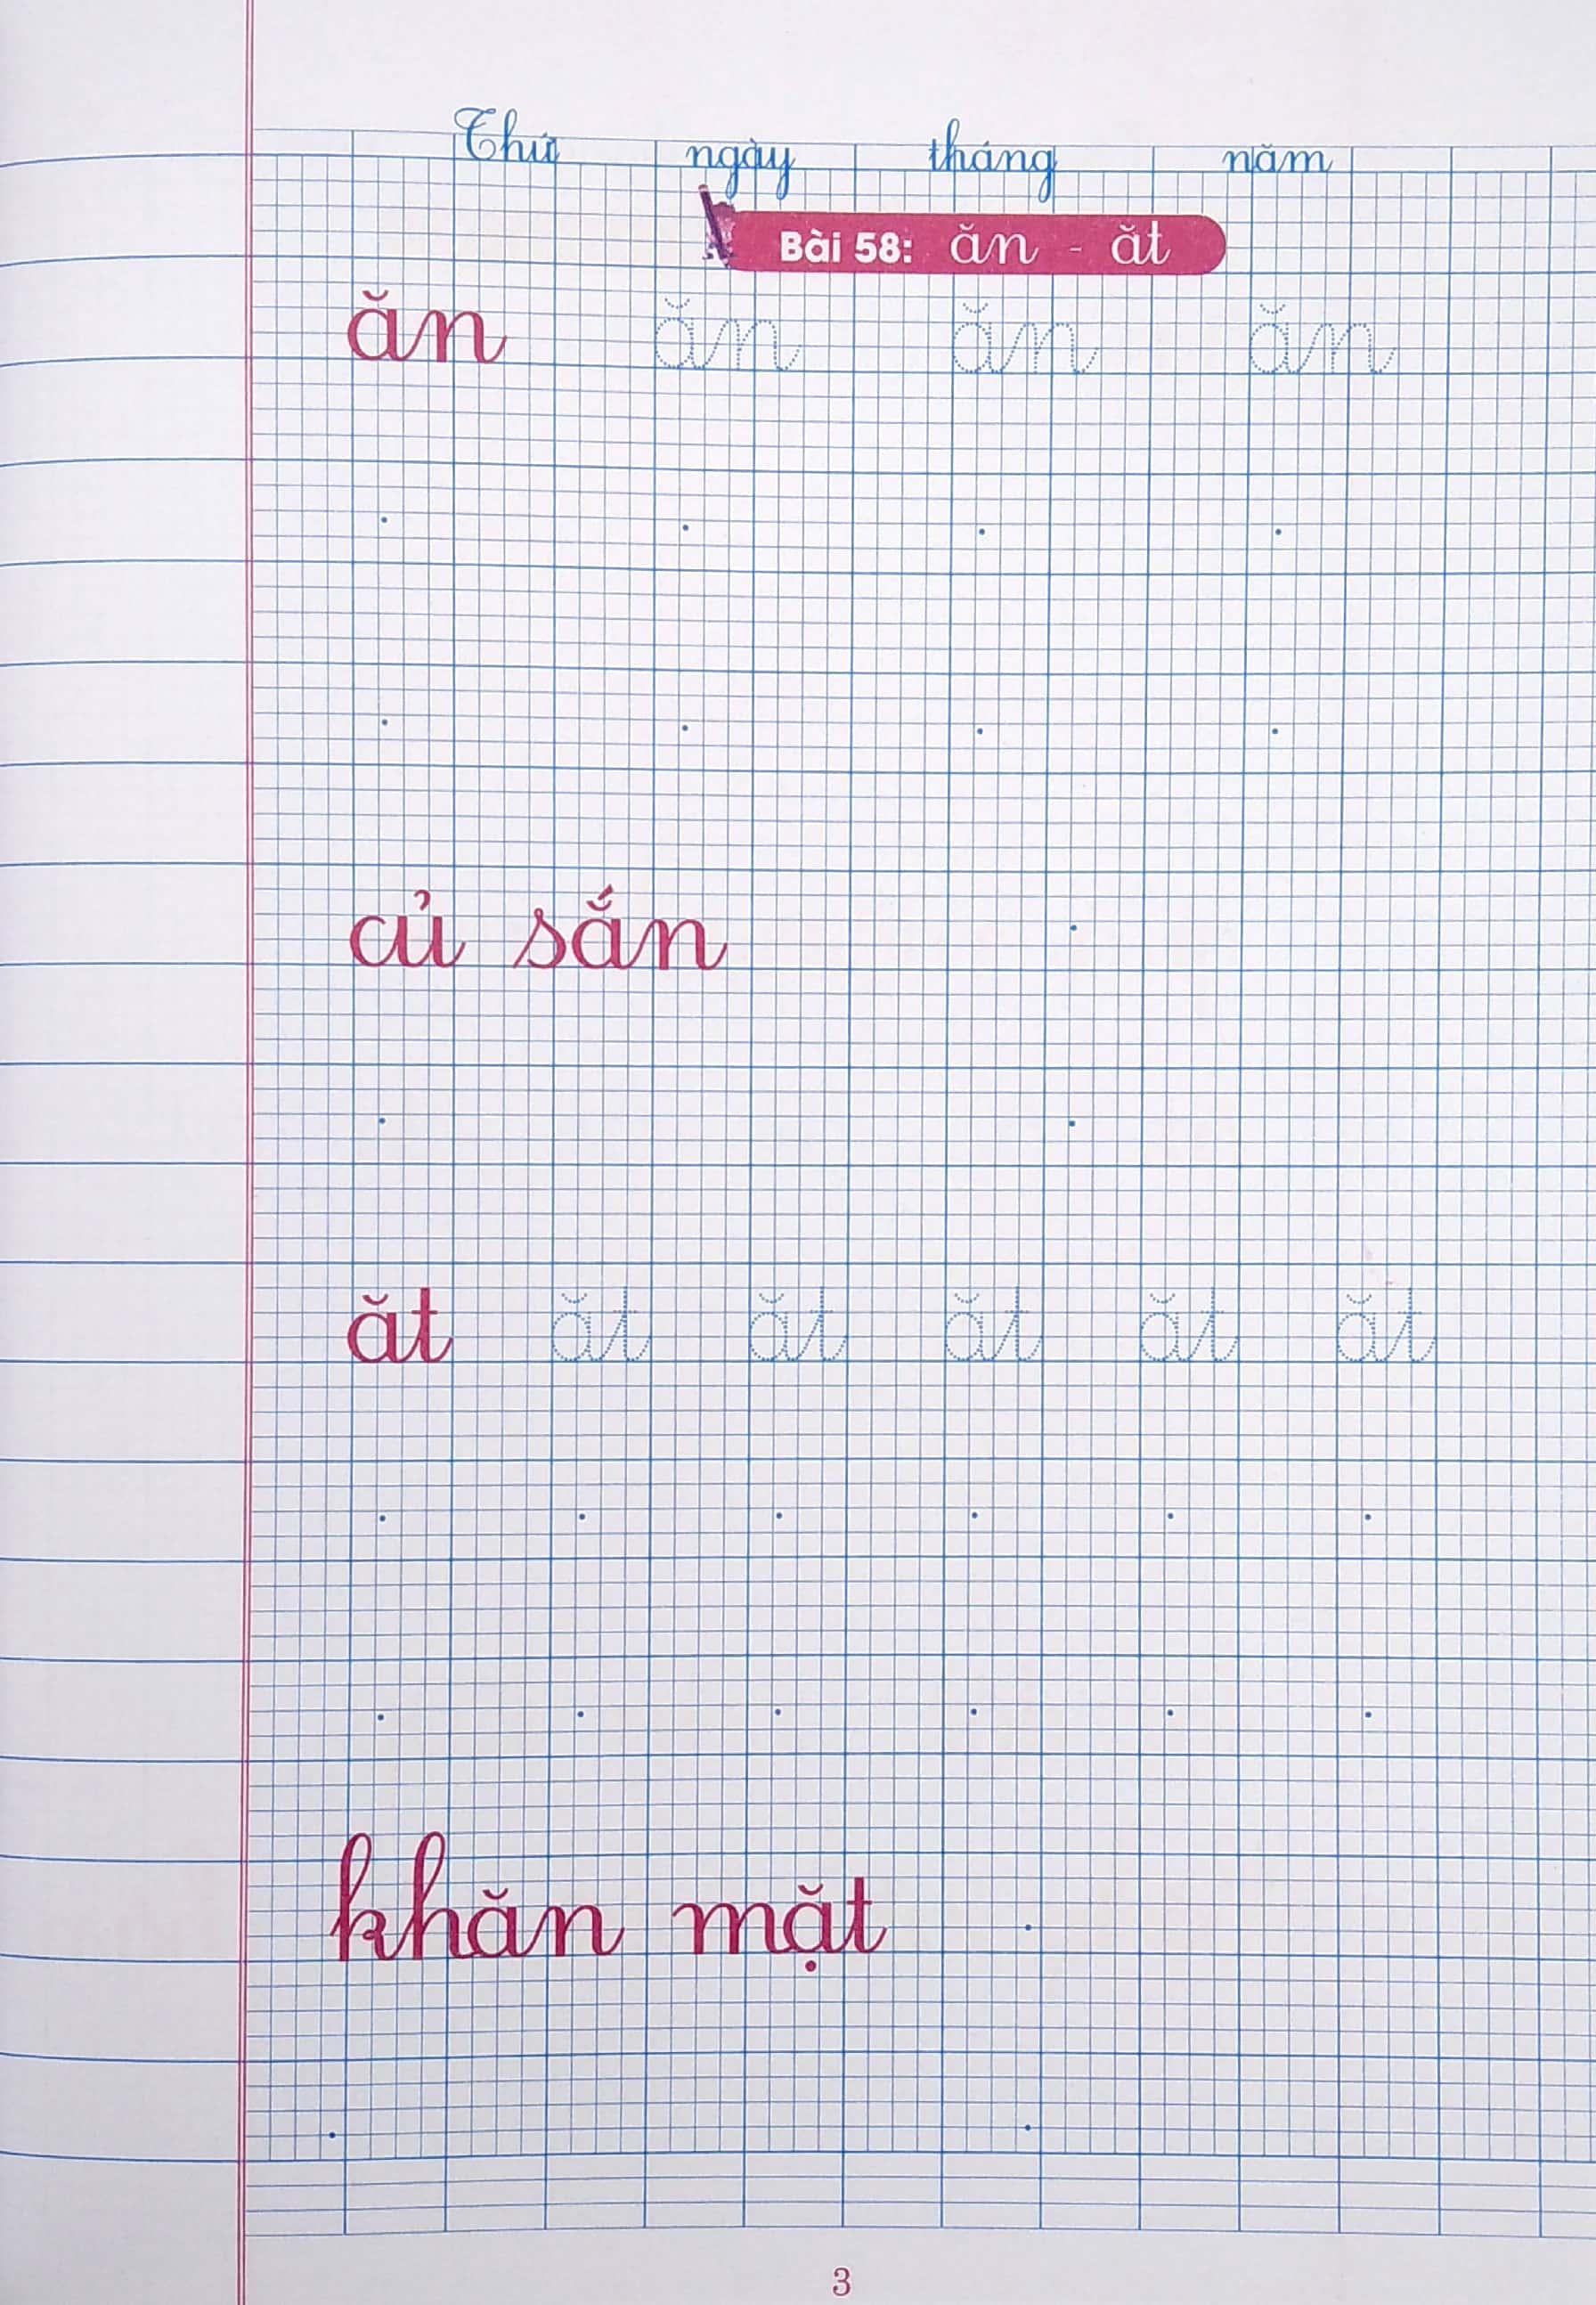 Thứ ngày tháng năm
Bài 58: ăn - ăt
ăn ăn ăn ăn
củ sắn
ăt ăt ăt ăt ăt ăt
khăn mặt
3